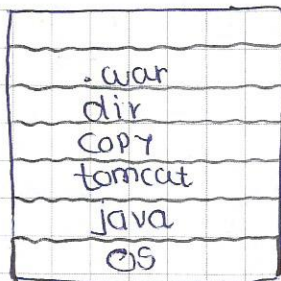 .war
dir
COPY
tomcat
java
OS